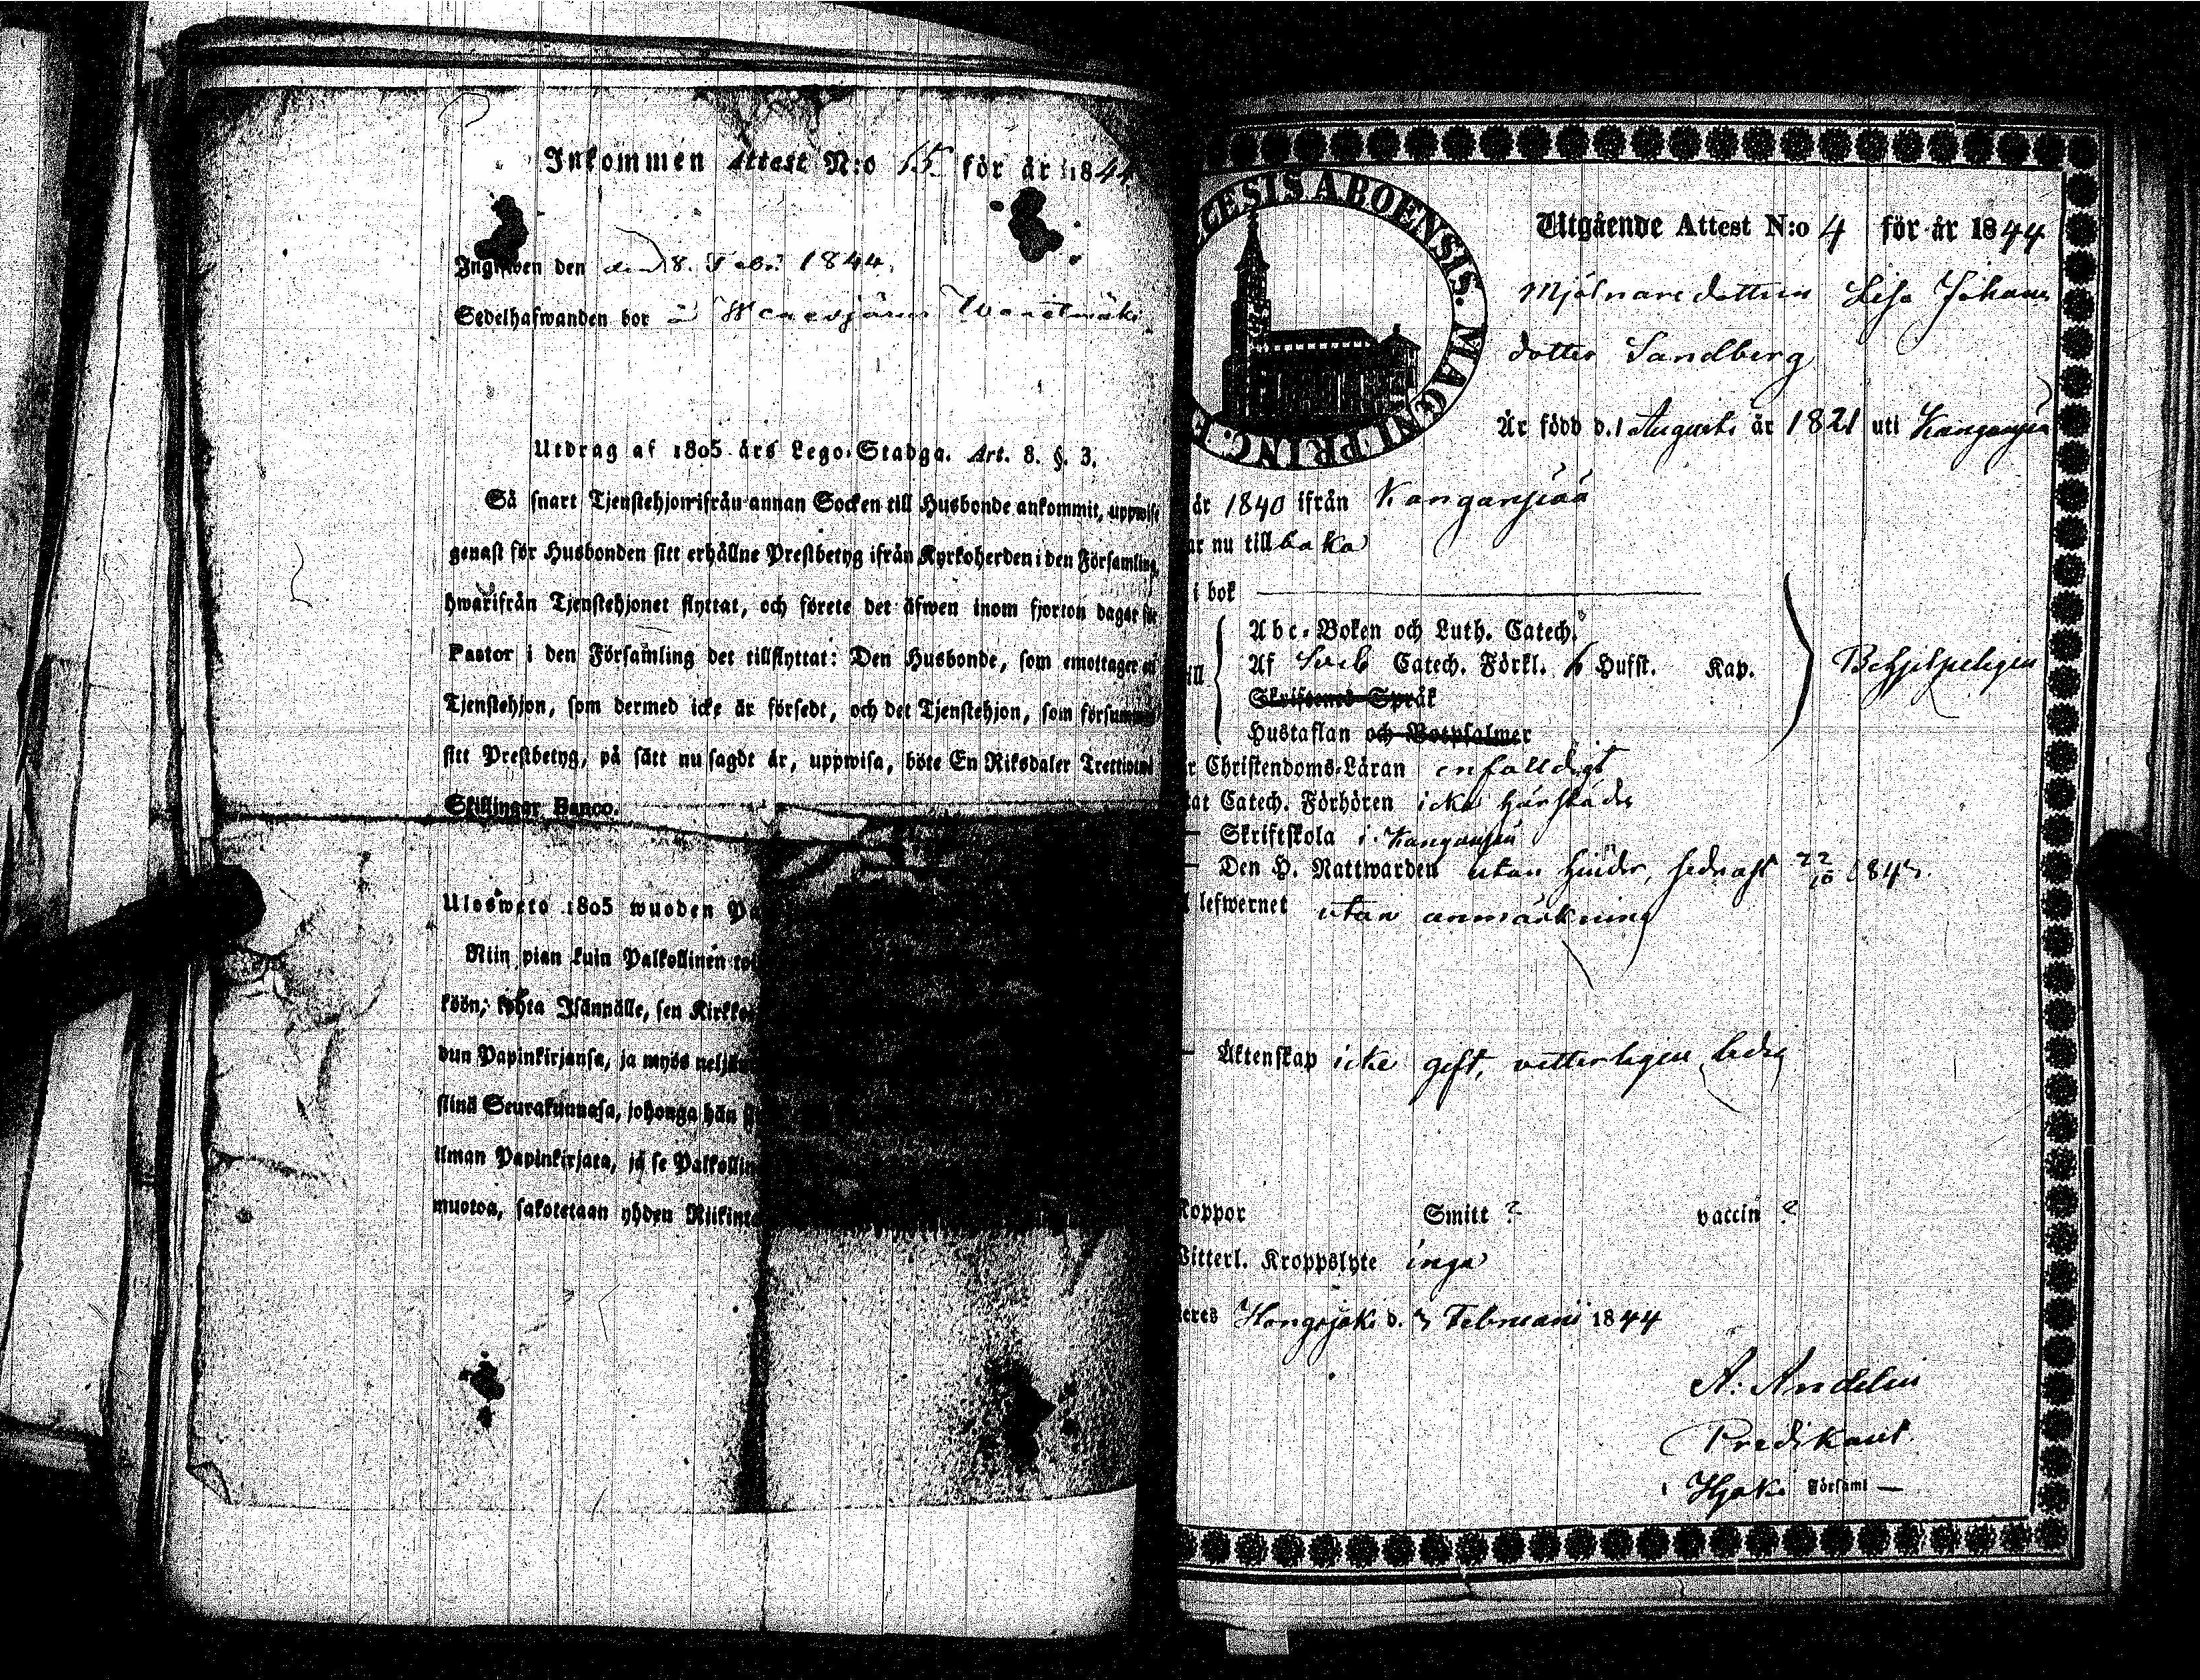 Inkommen Attest N:o 15 för år 1844
Ingifwen den den 8. Febr. 1844.
Sedelhafwanden bor å
Utdrag af 1805 års Lego-Stadga. Art. 8. §. 3.
Så snart Tjenstehjon ifrån annan Socken till Husbonde ankommit, uppwise
genast för Husbonden sitt erhållne Prestbetyg ifrån Kyrkoherden i den Församling,
hwarifrån Tjenstehjonet flyttat, och förete det äfwen inom fjorton dagar för
Pastor i den Församling det tillflyttat: Den Husbonde, som emottager
Tjenstehjon, som dermed icke är försedt, och det Tjenstehjon, som
sitt Prestbetyg, på sätt nu sagdt är, uppwisa, böte En Riksdaler
Skillingar Banco.
Ulosweto 1805 wuoden
Niin pian kuin Palkollinen
köön, kohta Isännälle, sen
dun Papinkirjansa, ja myös
siinä Seurakunnasa, johonga hän
ilman Papinkirjata, ja se
muotoa, sakotetaan yhden
CESIS ABOENSIS. MAGNI PRINC. F
Utgående Attest N:o 4 för år 1844
Mjölnaredottren Lisa Johans
dotter Sandberg
Är född d. 1 Augusti år 1821 uti
år 1840 ifrån
ar nu tillbaka
i bok
Abc-Boken och Luth. Catech.
Af Catech. Förkl. 6 Hufst. Kap.
Skriftenes Språk
Hustaflan och Botpsalmer
r Christendoms-Läran enfalldigt
tat Catech. Förhören icke härstädes
Skriftskola i
Den H. Nattwarden utan hinder, sednast 22/10 1843.
lefwernet utan anmärkning
Äktenskap icke gift, vetterligen ledig
Koppor Smitt ? vaccin ?
Witterl. Kroppslyte inga
teres Hongojoki d. 7 Februarii 1844
A: Andelin
Predikant
i Hjoki Församl